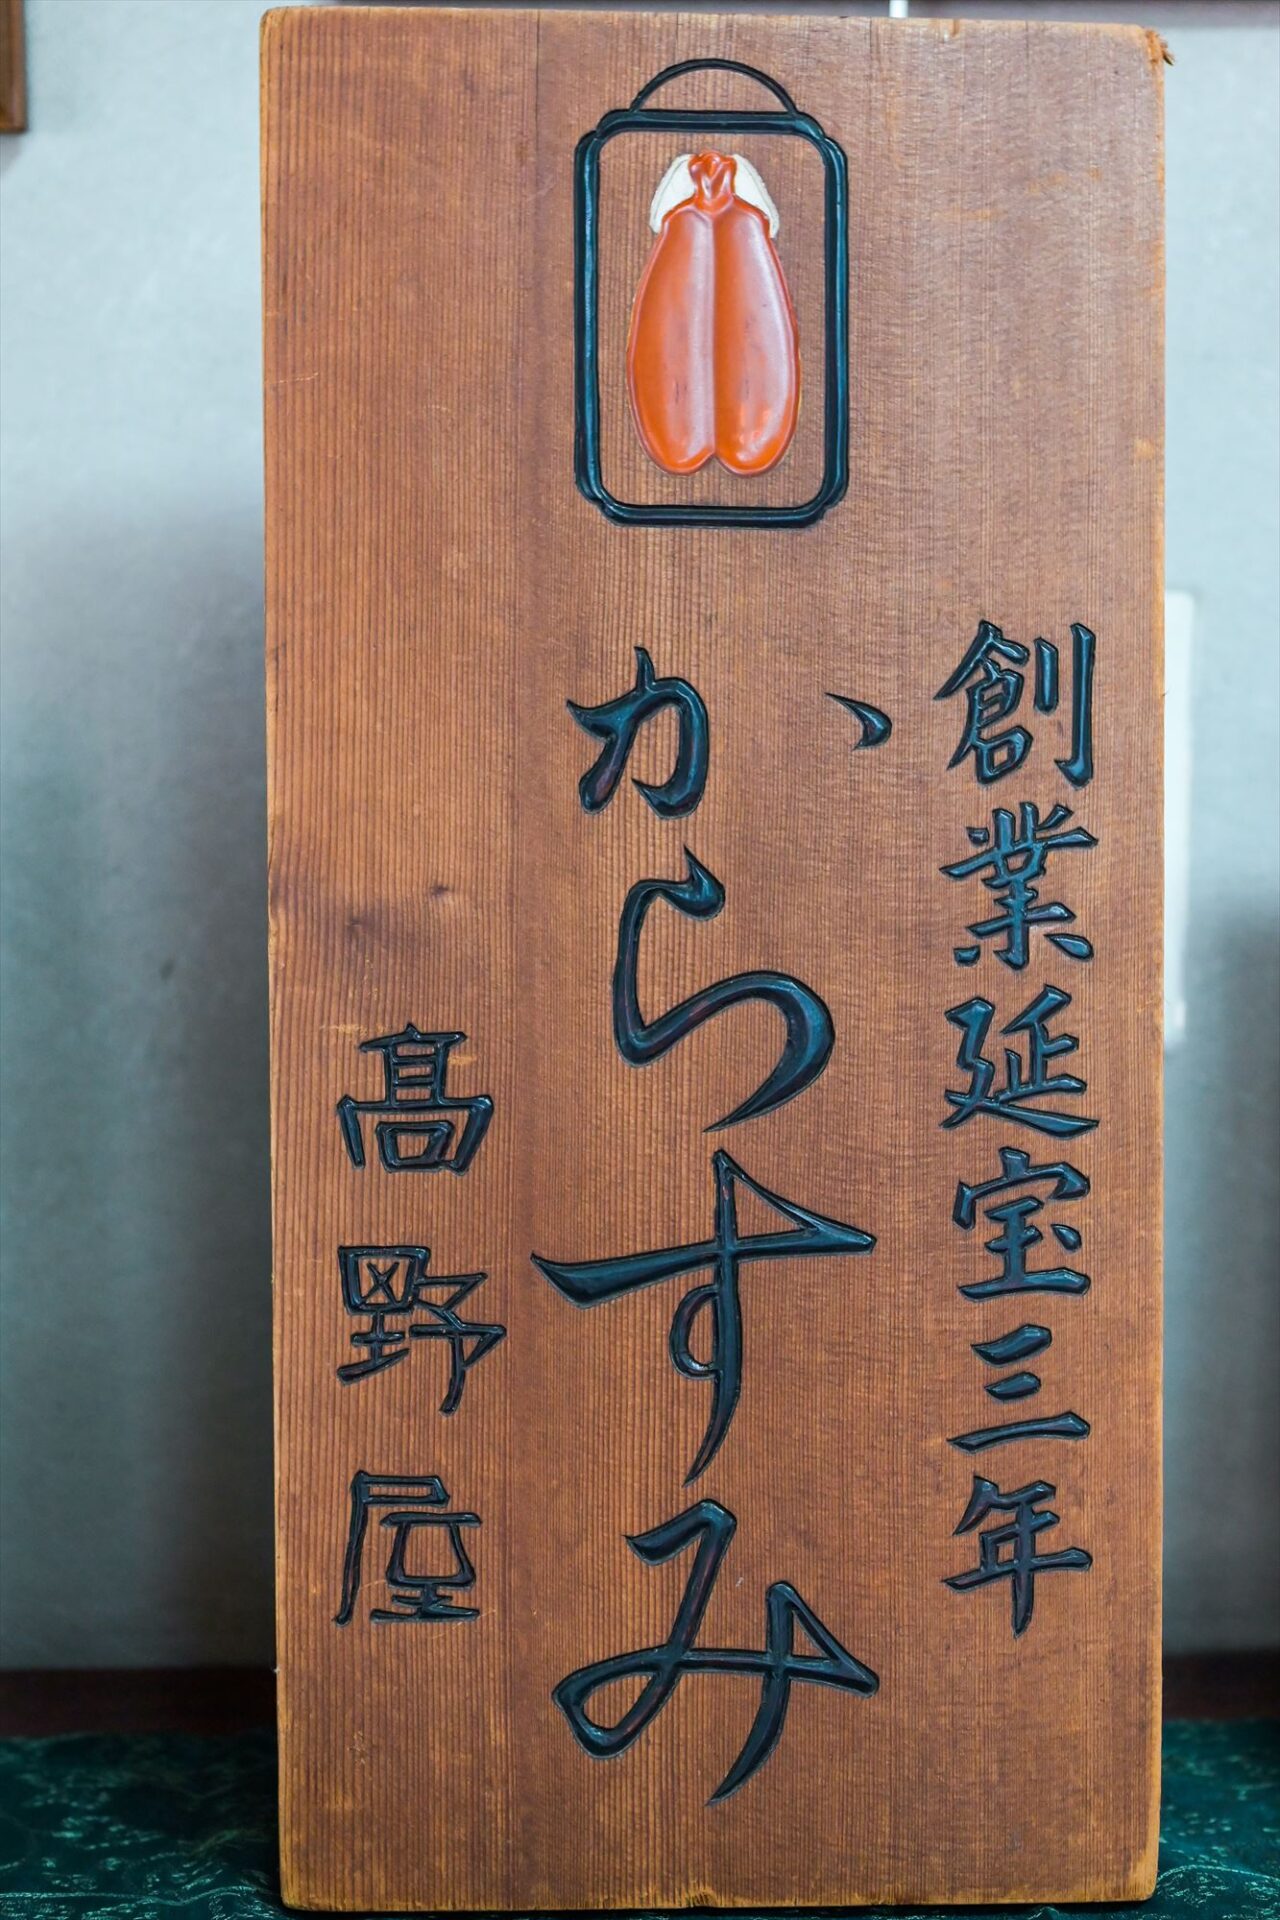 創業延宝三年
からすみ
髙野屋